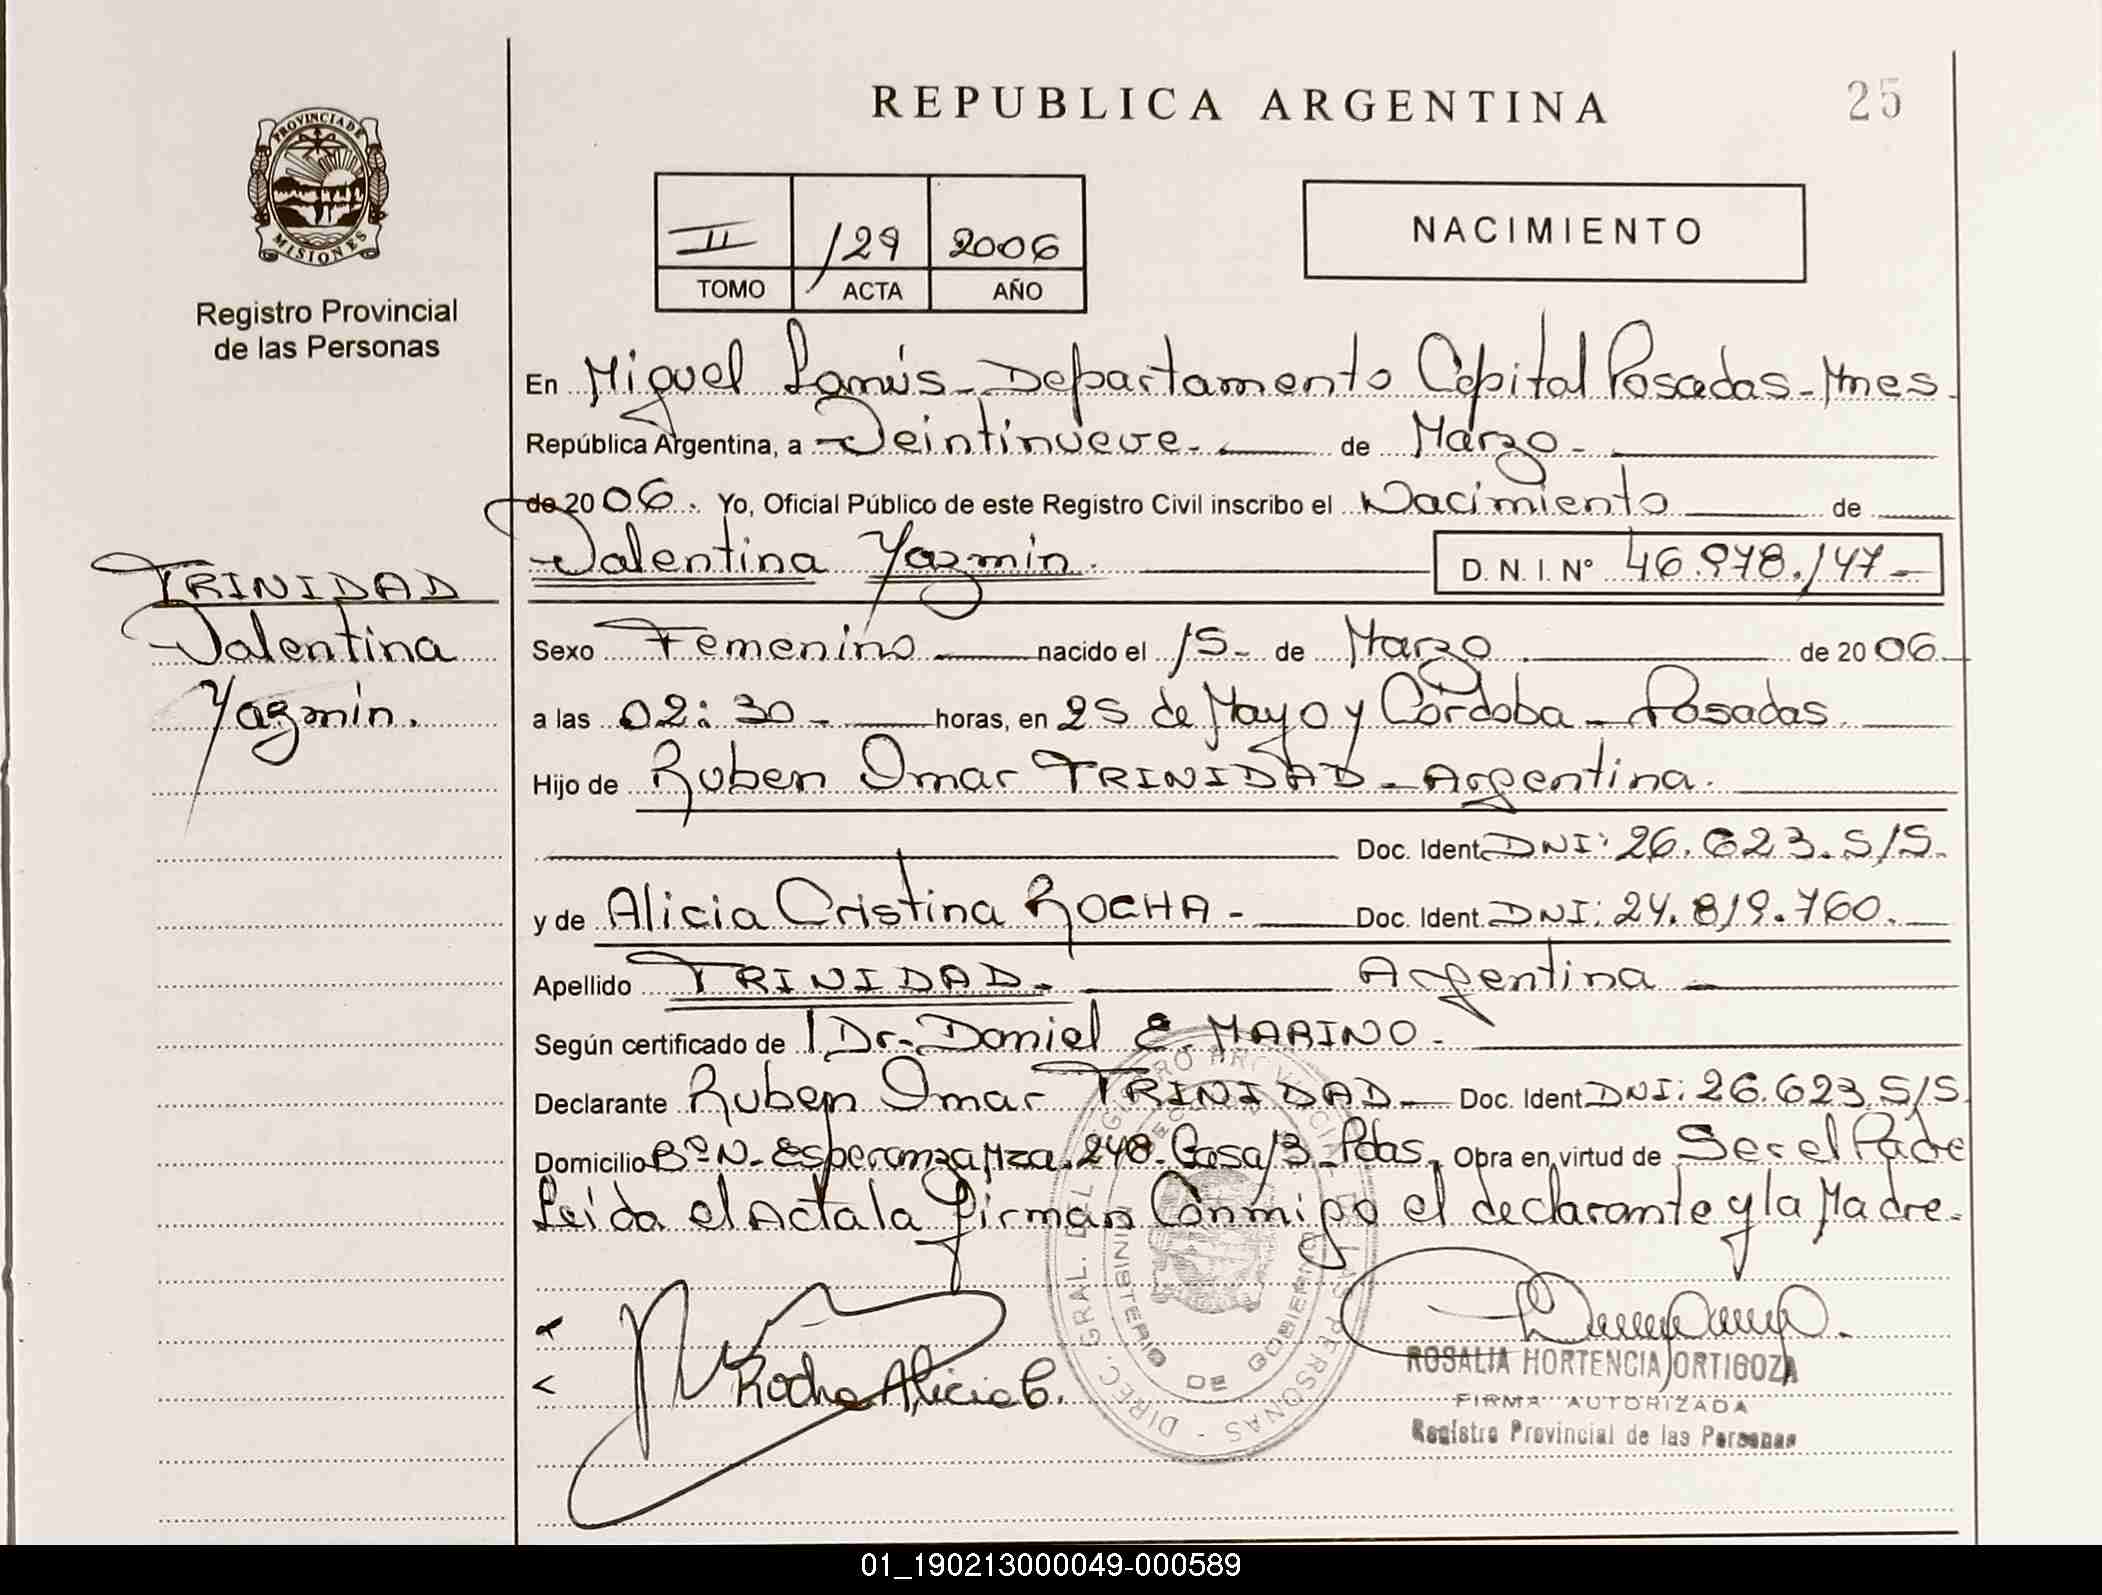 REPUBLICA ARGENTINA
25
PROVINCIA DE
MISIONES
Registro Provincial
de las Personas
II 129 2006
TOMO ACTA AÑO
NACIMIENTO
En Miguel Lanús - Departamento Capital Posadas - Mnes.
República Argentina, a Veintinueve - de Marzo -
de 2006. Yo, Oficial Público de este Registro Civil inscribo el Nacimiento de
Valentina Yazmin. D. N. I. N° 46.978.147 -
TRINIDAD
Valentina
Yazmin.
Sexo Femenino nacido el 15 - de Marzo de 2006
a las 02:30 - horas, en 25 de Mayo y Córdoba - Posadas.
Hijo de Ruben Omar TRINIDAD - Argentina.
Doc. Ident. DNI: 26.623.515.
y de Alicia Cristina ROCHA - Doc. Ident. DNI: 24.819.760.
Apellido TRINIDAD. Argentina
Según certificado de Dr. Daniel E. MARINO -
Declarante Ruben Omar TRINIDAD - Doc. Ident DNI: 26.623.515
Domicilio Bº N. Esperanza Mza. 248. Casa 13 - Pdas. Obra en virtud de Ser el Padre
Leida el Acta la firman Conmigo el declarante y la Madre.
Rocha Alicia C.
DIREC. GRAL. DEL REGISTRO PROVINCIAL DE LAS PERSONAS
MINISTERIO DE GOBIERNO
ROSALIA HORTENCIA ORTIGOZA
FIRMA AUTORIZADA
Registro Provincial de las Personas
01_190213000049-000589